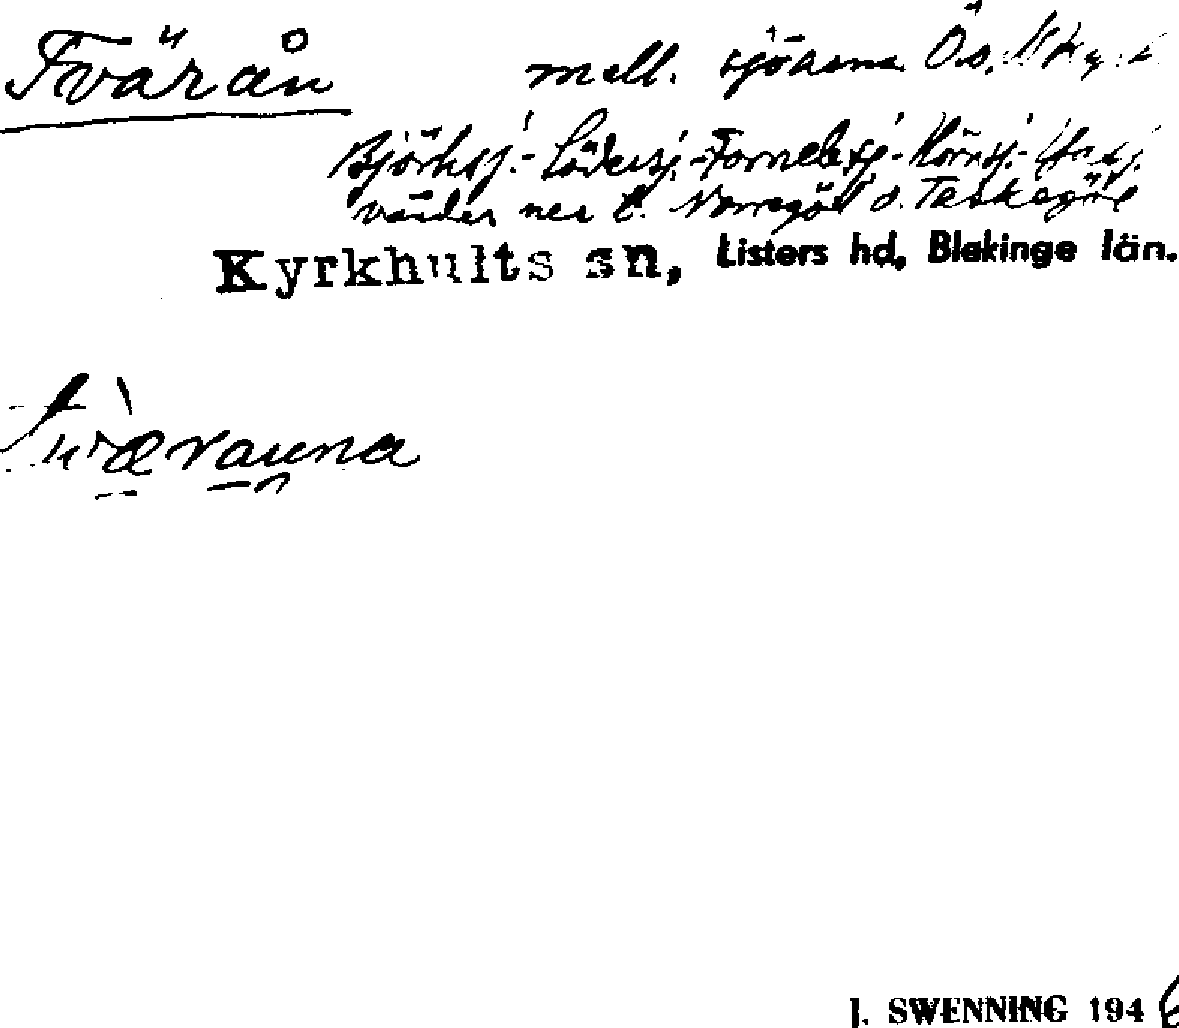 Tvärån mell. sjöarna Ö. o.
Björksj.- Södersj.- Fornebesj- Körrsj.-
vidare ner t. Norregöl o. Taskegöl
Kyrkhults sn, Listers hd, Blekinge län.
J. SWENNING 1946